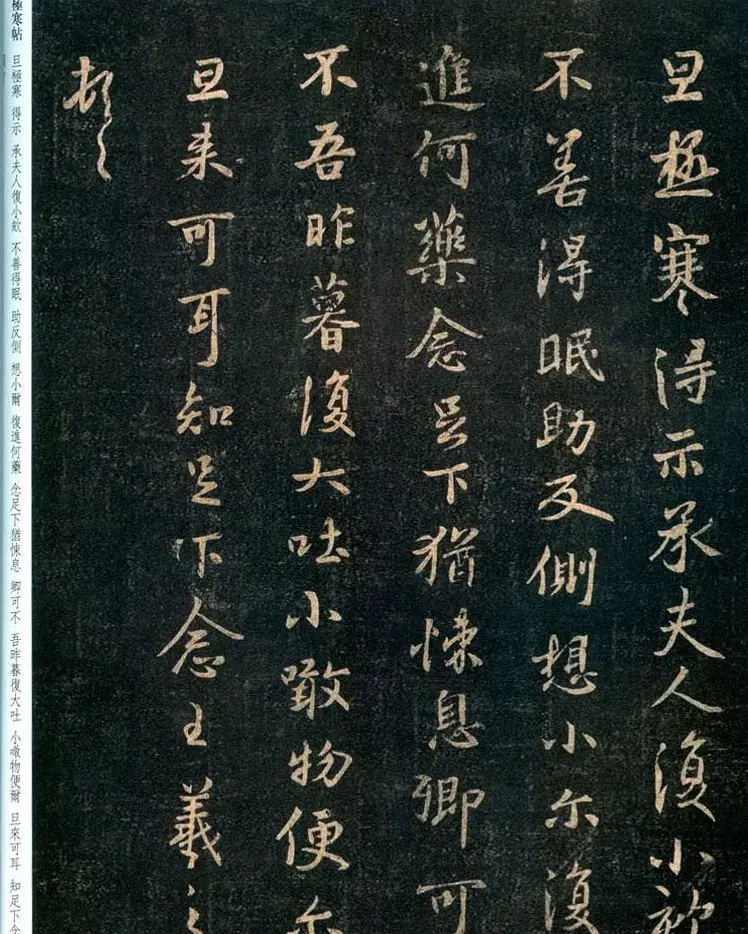 旦極寒得示承夫人復小欬
不善得眠助反側想小尔復
進何藥念足下猶悚息卿可
不吾昨暮復大吐小噉物便尔
旦来可耳知足下念王羲之
頓之
極寒帖 旦極寒 得示 承夫人復小欬 不善得眠 助反側 想小爾 復進何藥 念足下猶悚息 卿可不 吾昨暮復大吐 小噉物便爾 旦來可耳 知足下念